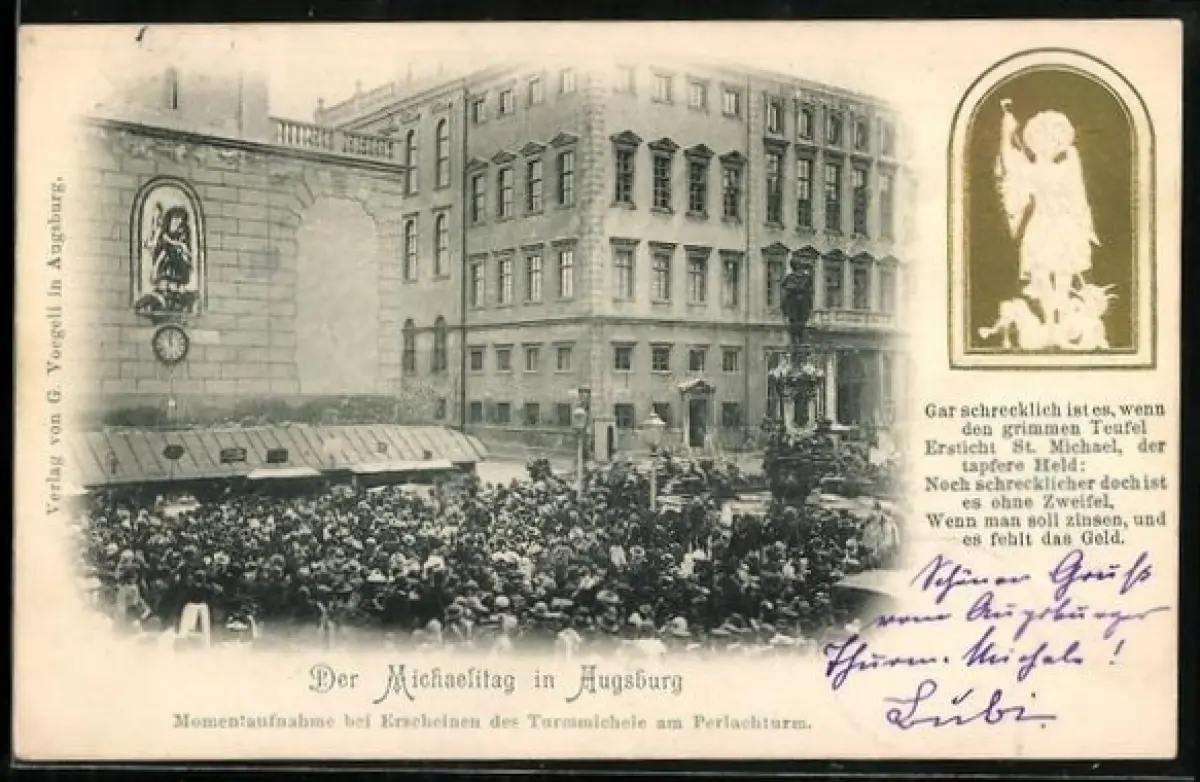 Verlag von G. Voegeli in Augsburg.
Gar schrecklich ist es, wenn
den grimmen Teufel
Ersticht St. Michael, der
tapfere Held:
Noch schrecklicher doch ist
es ohne Zweifel,
Wenn man soll zinsen, und
es fehlt das Geld.
Schönen Gruß
vom Augsburger
Thurm-Michele!
Lubi
Der Michaelitag in Augsburg
Momentaufnahme bei Erscheinen des Turmmichele am Perlachturm.